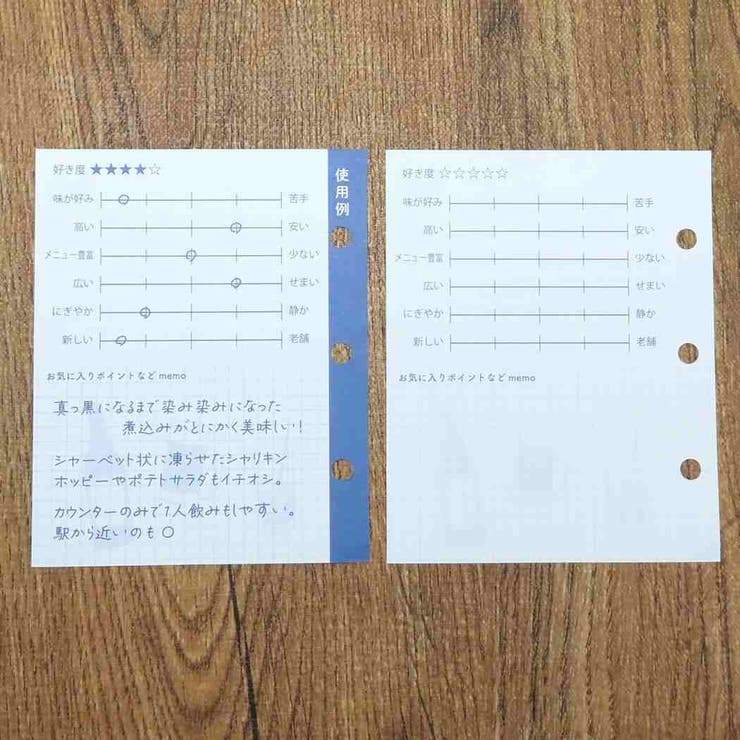 好き度 ★★★★☆
使用例
味が好み 苦手
高い 安い
メニュー豊富 少ない
広い せまい
にぎやか 静か
新しい 老舗
お気に入りポイントなどmemo
真っ黒になるまで染み染みになった
煮込みがとにかく美味しい!
シャーベット状に凍らせたシャリキン
ホッピーやポテトサラダもイチオシ。
カウンターのみで1人飲みもしやすい。
駅から近いのも○
好き度 ☆☆☆☆☆
味が好み 苦手
高い 安い
メニュー豊富 少ない
広い せまい
にぎやか 静か
新しい 老舗
お気に入りポイントなどmemo